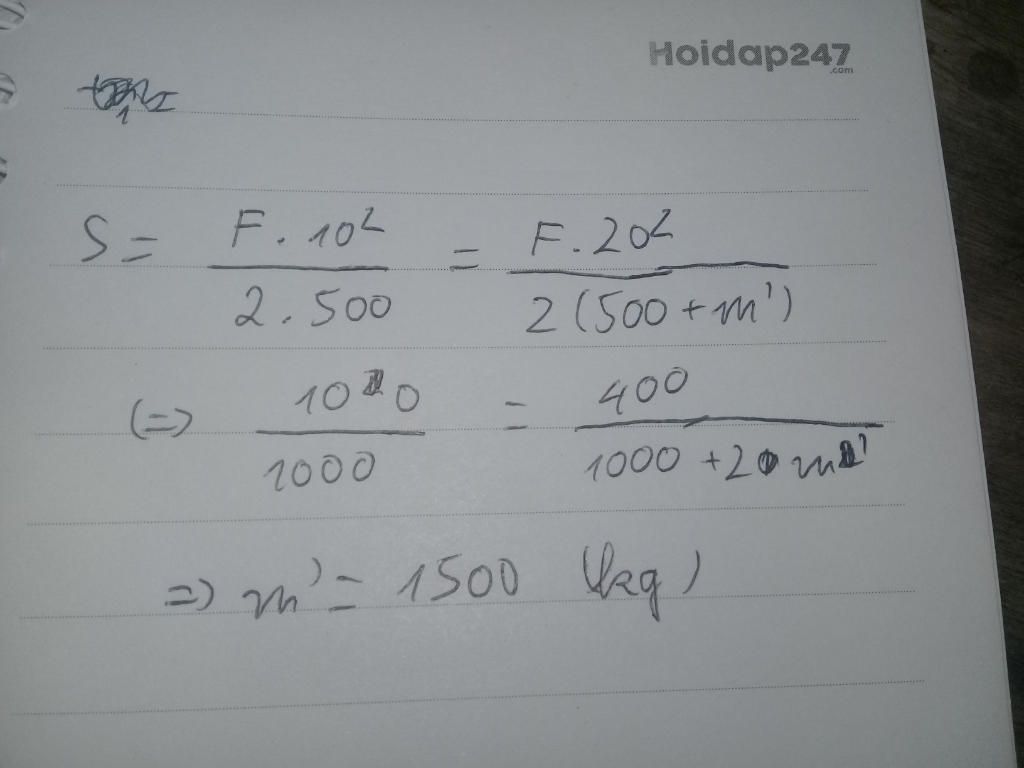 Hoidap247
.com
S = F . 10² / 2 . 500 = F . 20² / 2 (500 + m')
(=) 100 / 1000 = 400 / 1000 + 2 m'
=) m' = 1500 (kg)